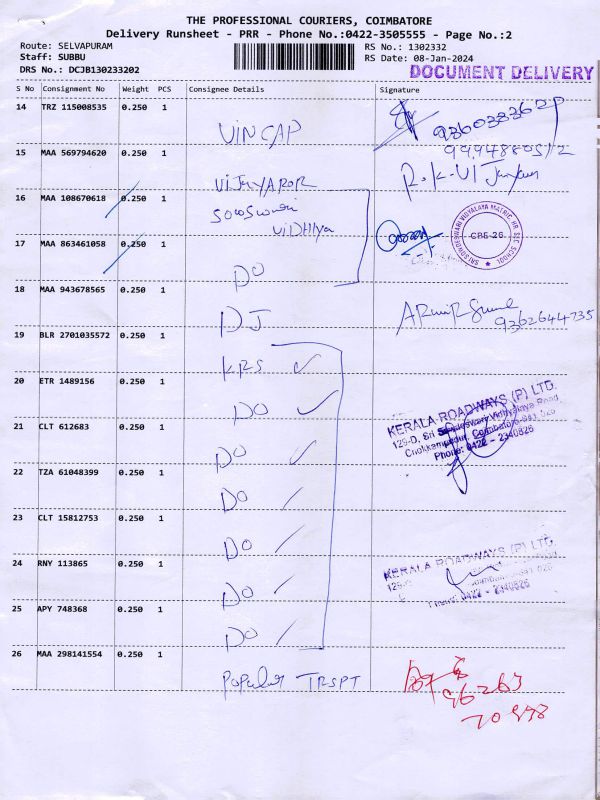 THE PROFESSIONAL COURIERS, COIMBATORE
Delivery Runsheet - PRR - Phone No.:0422-3505555 - Page No.:2
Route: SELVAPURAM
RS No.: 1302332
Staff: SUBBU
RS Date: 08-Jan-2024
DRS No.: DCJB130233202
DOCUMENT DELIVERY
S No Consignment No Weight PCS Consignee Details Signature
14 TRZ 115008535 0.250 1
VINCAP
9360383620
9994880512
15 MAA 569794620 0.250 1
VIJAYAROR
R.K.VIJayan
16 MAA 108670618 0.250 1
SOCOSWARI
VIDHYA
SRI SUNDESWARI VIDYALAYA MATRIC. HR. SEC. SCHOOL
CBE-26
17 MAA 863461058 0.250 1
DO
18 MAA 943678565 0.250 1
DJ
9362644735
19 BLR 2701035572 0.250 1
KRS
20 ETR 1489156 0.250 1
DO
KERALA ROADWAYS (P) LTD.
129-D, Sri Sundeswari Vidhyalaya Road,
Chokkampudur, Coimbatore-641 026
Phone: 0422 - 2340826
21 CLT 612683 0.250 1
DO
22 TZA 61048399 0.250 1
DO
23 CLT 15812753 0.250 1
DO
24 RNY 113865 0.250 1
DO
KERALA ROADWAYS (P) LTD.
Phone: 0422 - 2340826
25 APY 748368 0.250 1
DO
26 MAA 298141554 0.250 1
Popular TRSPT
96263